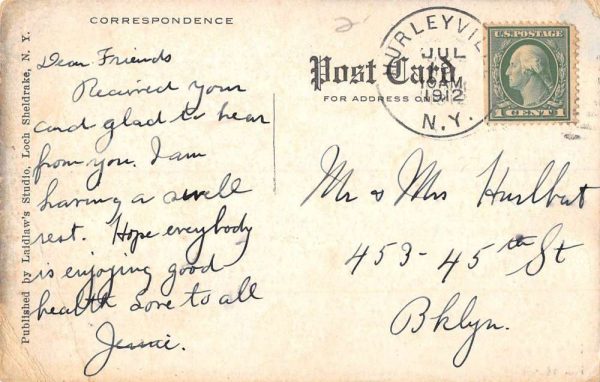 CORRESPONDENCE
Dear Friends
Received your
card glad to hear
from you. I am
having a swell
rest. Hope everybody
is enjoying good
health Love to all
Jennie.
Published by Laidlaw's Studio, Loch Sheldrake, N. Y.
2
Post Card
FOR ADDRESS ON
URLEYVIL
JUL
10AM
1912
N.Y.
U.S. POSTAGE
1 CENT 1
Mr & Mrs Hurlbut
453-45th St
Bklyn.